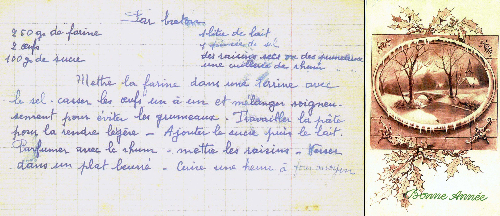 Far breton
250 gs de farine
2 œufs
100 g de sucre
1 litre de lait
1 pincée de sel
des raisins secs ou des pruneaux
une cuillère de rhum
Mettre la farine dans une terrine avec
le sel - casser les œufs un à un et mélanger soigneu-
sement pour éviter les grumeaux - Travailler la pâte
pour la rendre légère - Ajouter le sucre puis le lait.
Parfumer avec le rhum - mettre les raisins - Verser
dans un plat beurré - Cuire une heure à four moyen
Bonne Année